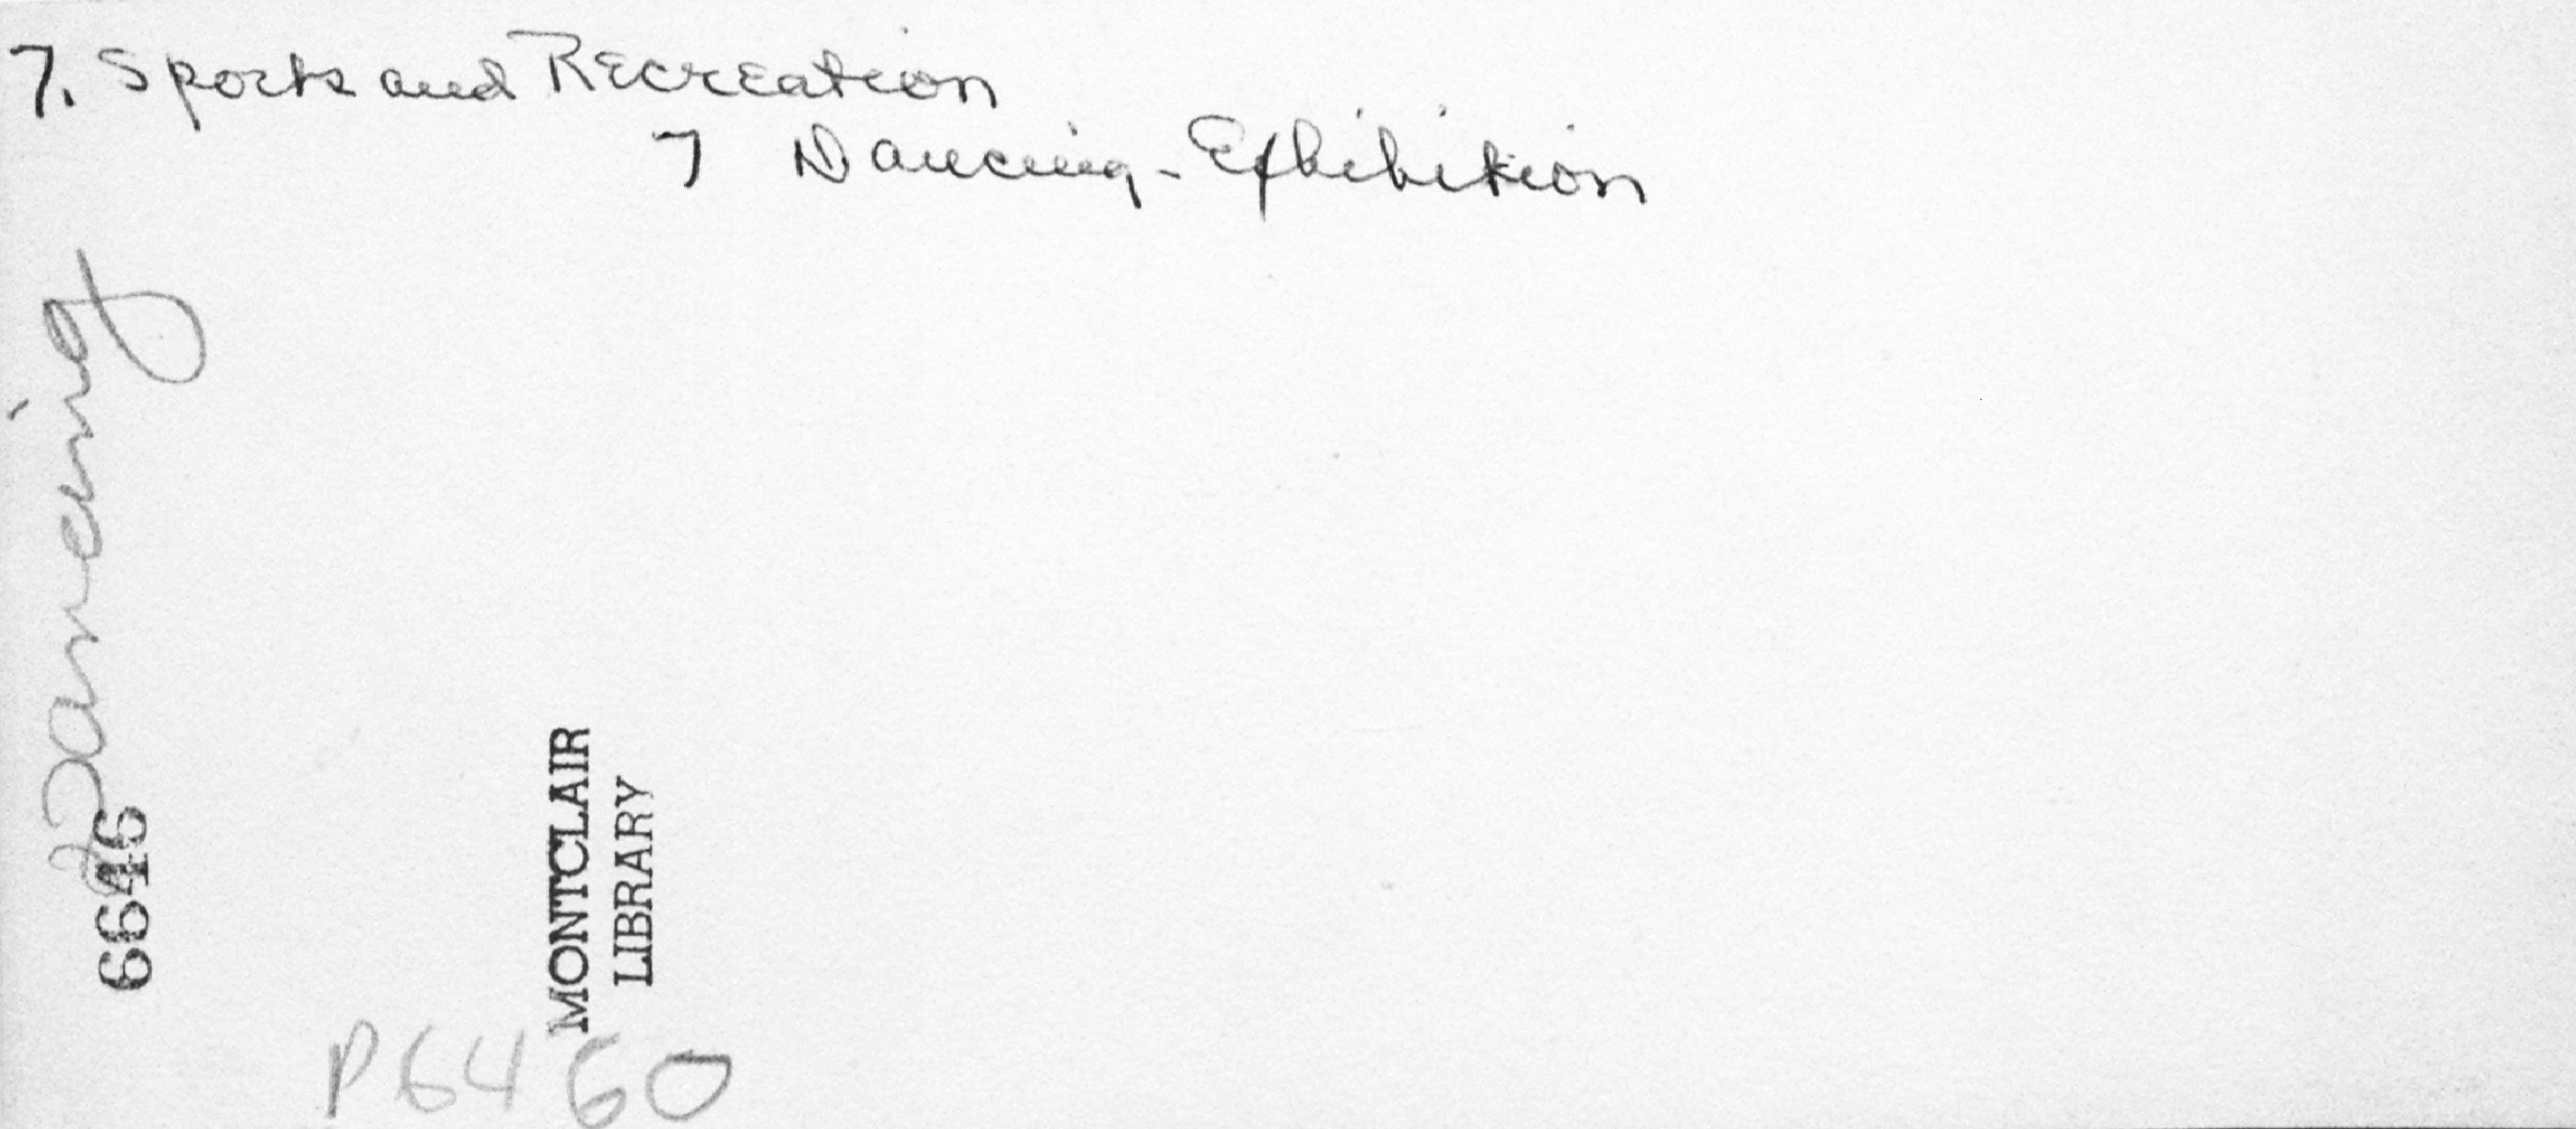 7. Sports and Recreation
7 Dancing - Exhibition
Dancing
6646
MONTCLAIR
LIBRARY
P6460